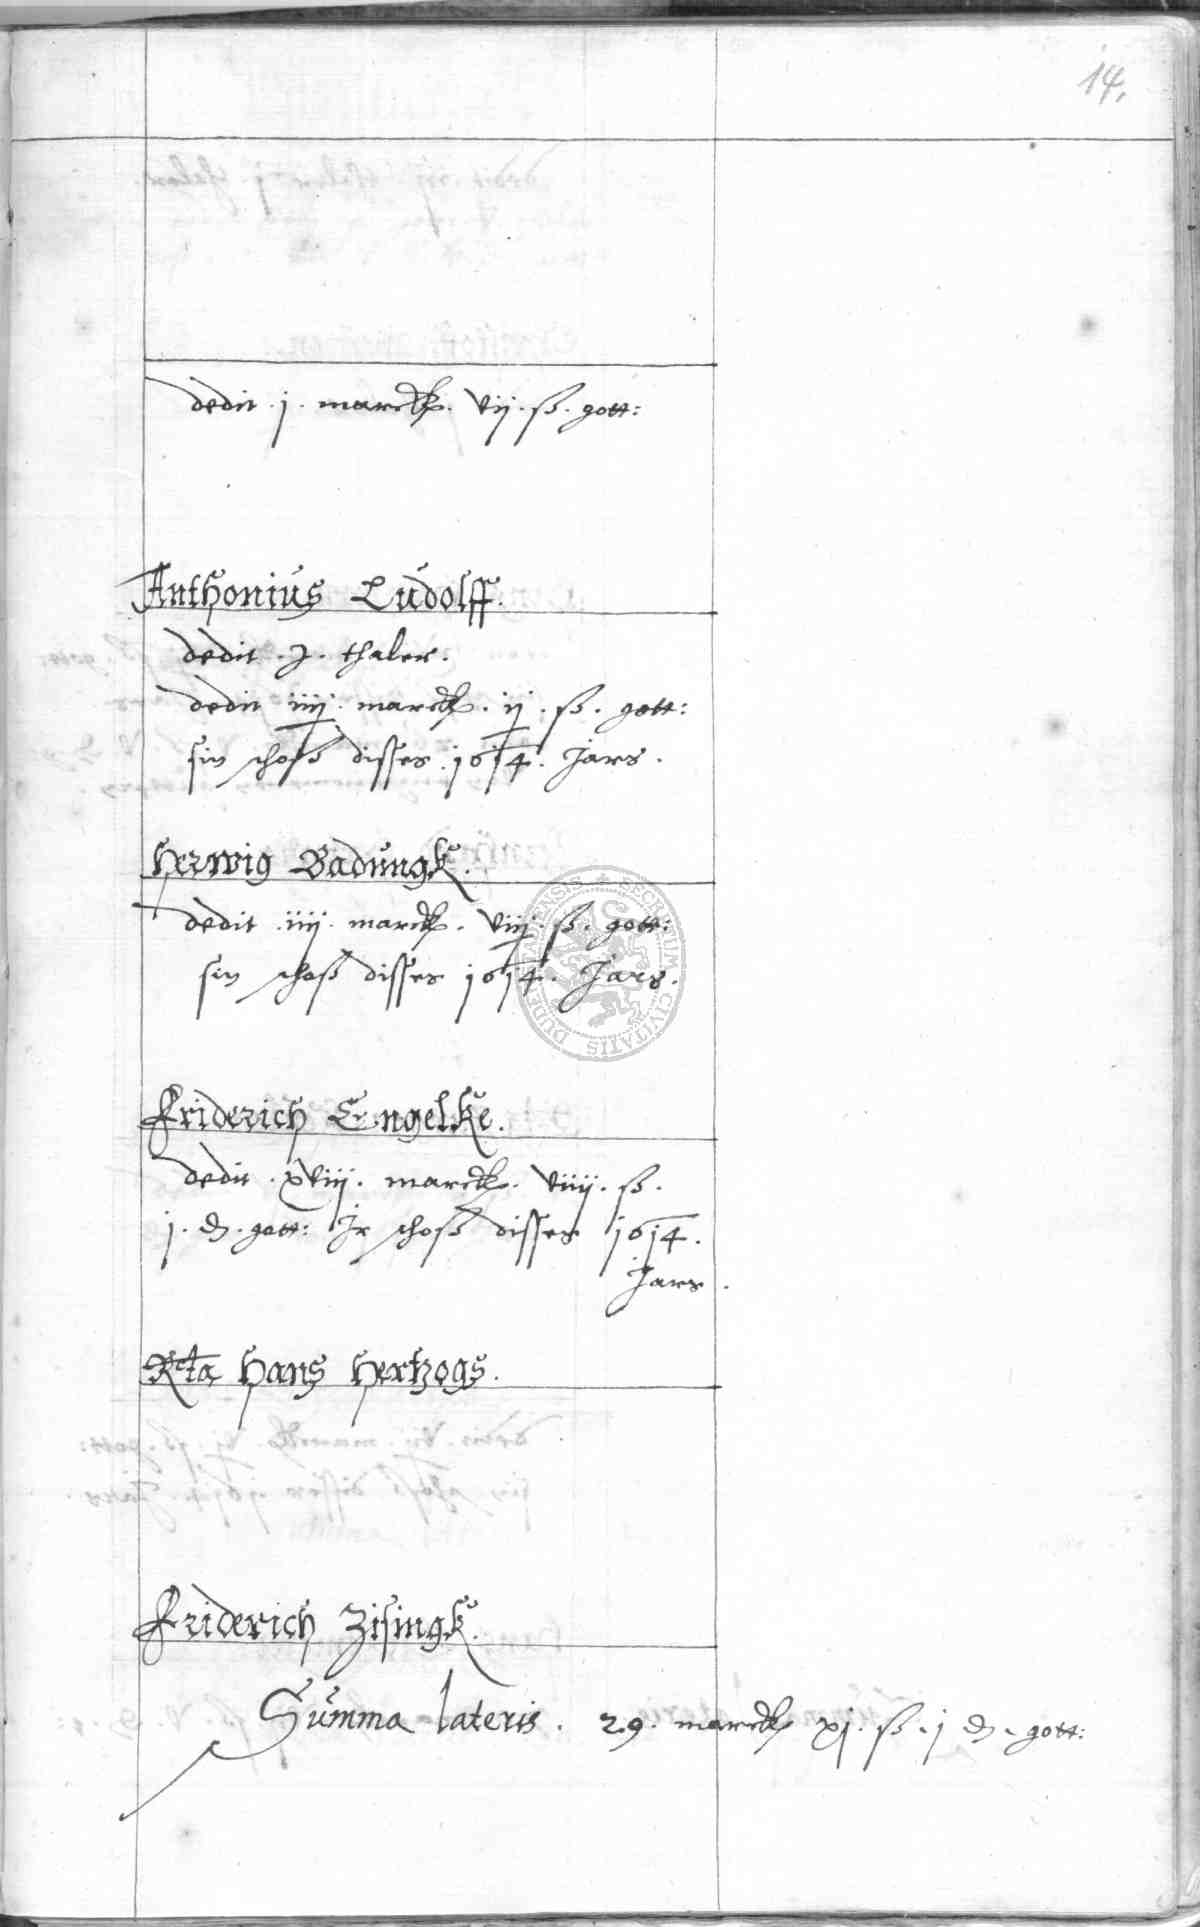 14.
dedit . j . marck . vij . ß . gott:
Anthonius Ludolff.
dedit . j . thaler .
dedit iiij . marck . ij . ß . gott:
sin schoß disses . 1614 . Jars .
Herwig Badungk.
dedit iiij . marck . viij . ß . gott:
sin schoß disses 1614 . Jars .
Friderich Engelke.
dedit . xviij . marck . viiij . ß .
j . d . gott: Jr schoß disses 1614 .
Jars .
Rta Hans Hertzogs .
Friderich Zisingk.
Summa lateris . 29 . marck xj . ß . j d . gott:
SECRETUM CIVITATIS DUDENSTADENSIS